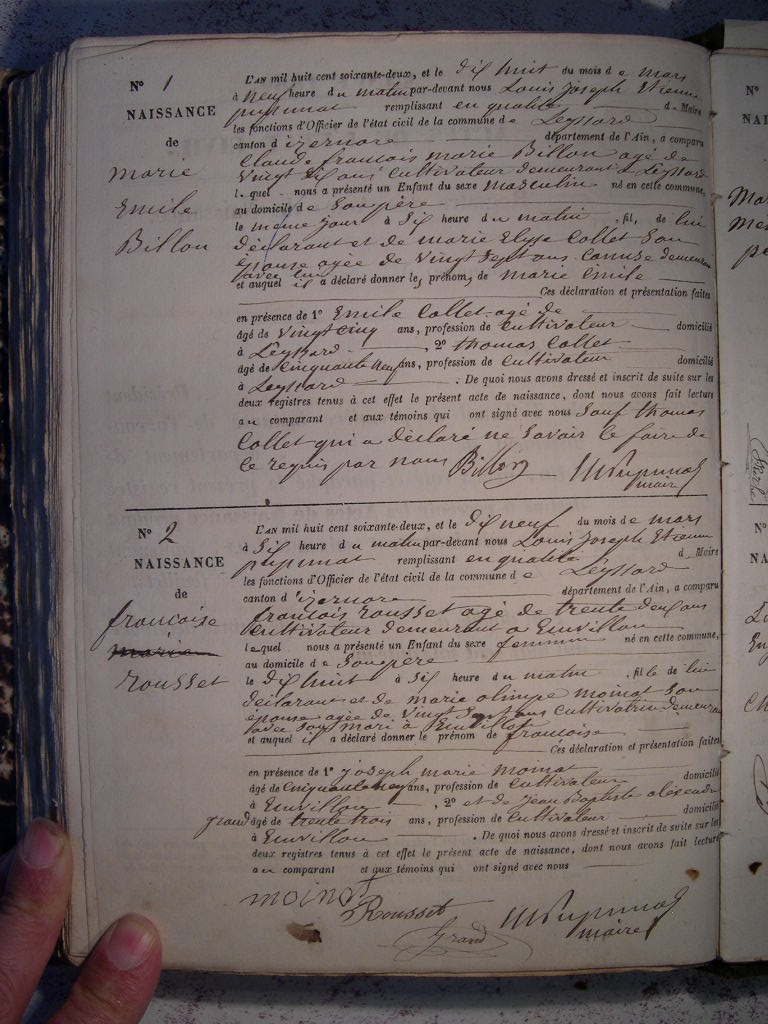 N° 1
NAISSANCE
de
marie
Emile
Billon
L'AN mil huit cent soixante-deux, et le dix huit du mois de mars
à neuf heure du matin par-devant nous Louis Joseph Etienne
pupunat remplissant en qualité de Maire
les fonctions d'Officier de l'état civil de la commune de Leyssard
canton d'izernore département de l'Ain, a comparu
Claude francois marie Billon agé de
vingt six ans cultivateur demeurant a Leyssard
lequel nous a présenté un Enfant du sexe masculin né en cette commune,
au domicile de Son père
le même jour à Six heure du matin, fil, de lui
déclarant et de marie Elyse Collet Son
épouse agée de vingt Sept ans demeurant
avec lui
et auquel il a déclaré donner le, prénom, de marie emile
Ces déclaration et présentation faites
en présence de 1° Emile Collet agé de
âgé de vingt cinq ans, profession de Cultivateur domicilié
à Leyssard, 2° thomas Collet
âgé de Cinquante neuf ans, profession de Cultivateur domicilié
à Leyssard. De quoi nous avons dressé et inscrit de suite sur les
deux registres tenus à cet effet le présent acte de naissance, dont nous avons fait lecture
au comparant et aux témoins qui ont signé avec nous Sauf thomas
Collet qui a déclaré ne Savoir le faire de
ce requis par nous Billon Pupunat
maire
N° 2
NAISSANCE
de
francoise
rousset
L'AN mil huit cent soixante-deux, et le dix neuf du mois de mars
à Six heure du matin par-devant nous Louis Joseph Etienne
pupunat remplissant en qualité de Maire
les fonctions d'Officier de l'état civil de la commune de Leyssard
canton d'izernore département de l'Ain, a comparu
francois rousset agé de trente deux ans
Cultivateur demeurant a Emvillon
lequel nous a présenté un Enfant du sexe feminin né en cette commune,
au domicile de Son père
le dix huit à Six heure du matin, fille de lui
déclarant et de marie olimpe moinat Son
épouse agée de vingt Sept ans Cultivatrice demeurant
avec Son mari à Emvillon
et auquel il a déclaré donner le prénom de francoise
Ces déclaration et présentation faites
en présence de 1° joseph marie moinat
âgé de Cinquante neuf ans, profession de Cultivateur domicilié
à Emvillon, 2° et de Jean Baptiste alexandre
grand âgé de trente trois ans, profession de Cultivateur domicilié
à Emvillon. De quoi nous avons dressé et inscrit de suite sur les
deux registres tenus à cet effet le présent acte de naissance, dont nous avons fait lecture
au comparant et aux témoins qui ont signé avec nous
moinat
Rousset Pupunat
Grand maire